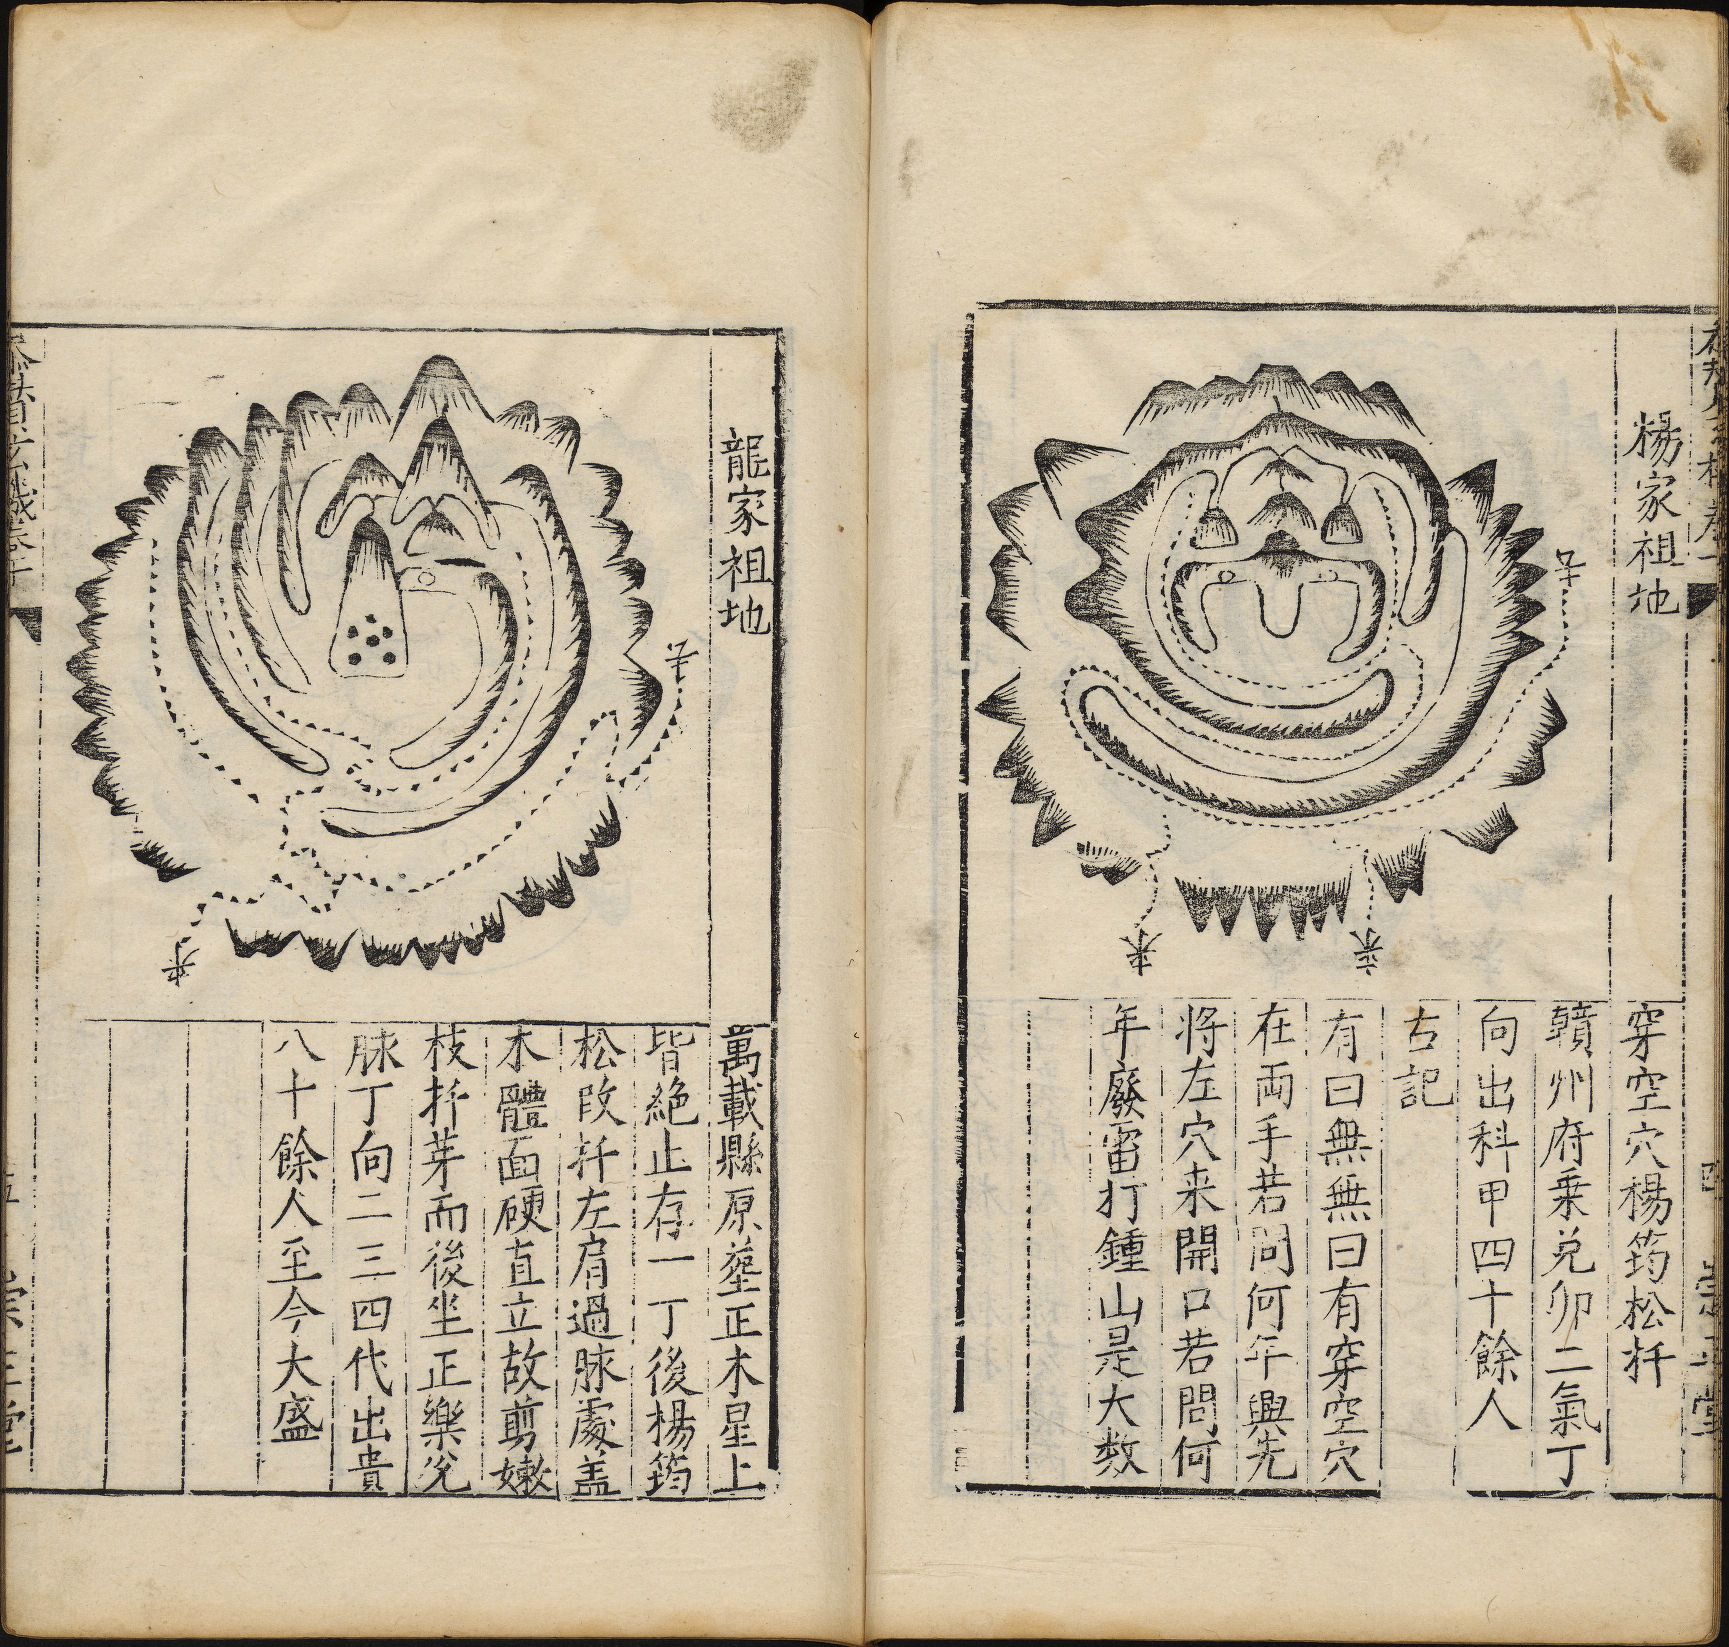 楊家祖地
穿空穴楊筠松扦
贛州府乗兑卯二氣丁
向出科甲四十餘人
古記
有曰無無曰有穿空穴
在両手若問何年興先
将左穴来開口若問何
年廢雷打鍾山是大数
龍家祖地
萬載縣原塟正木星上
皆絶止存一丁後楊筠
松改扦左肩過脉處盖
木體面硬直立故剪嫩
枝扦芽而後坐正樂兊
脉丁向二三四代出貴
八十餘人至今大盛